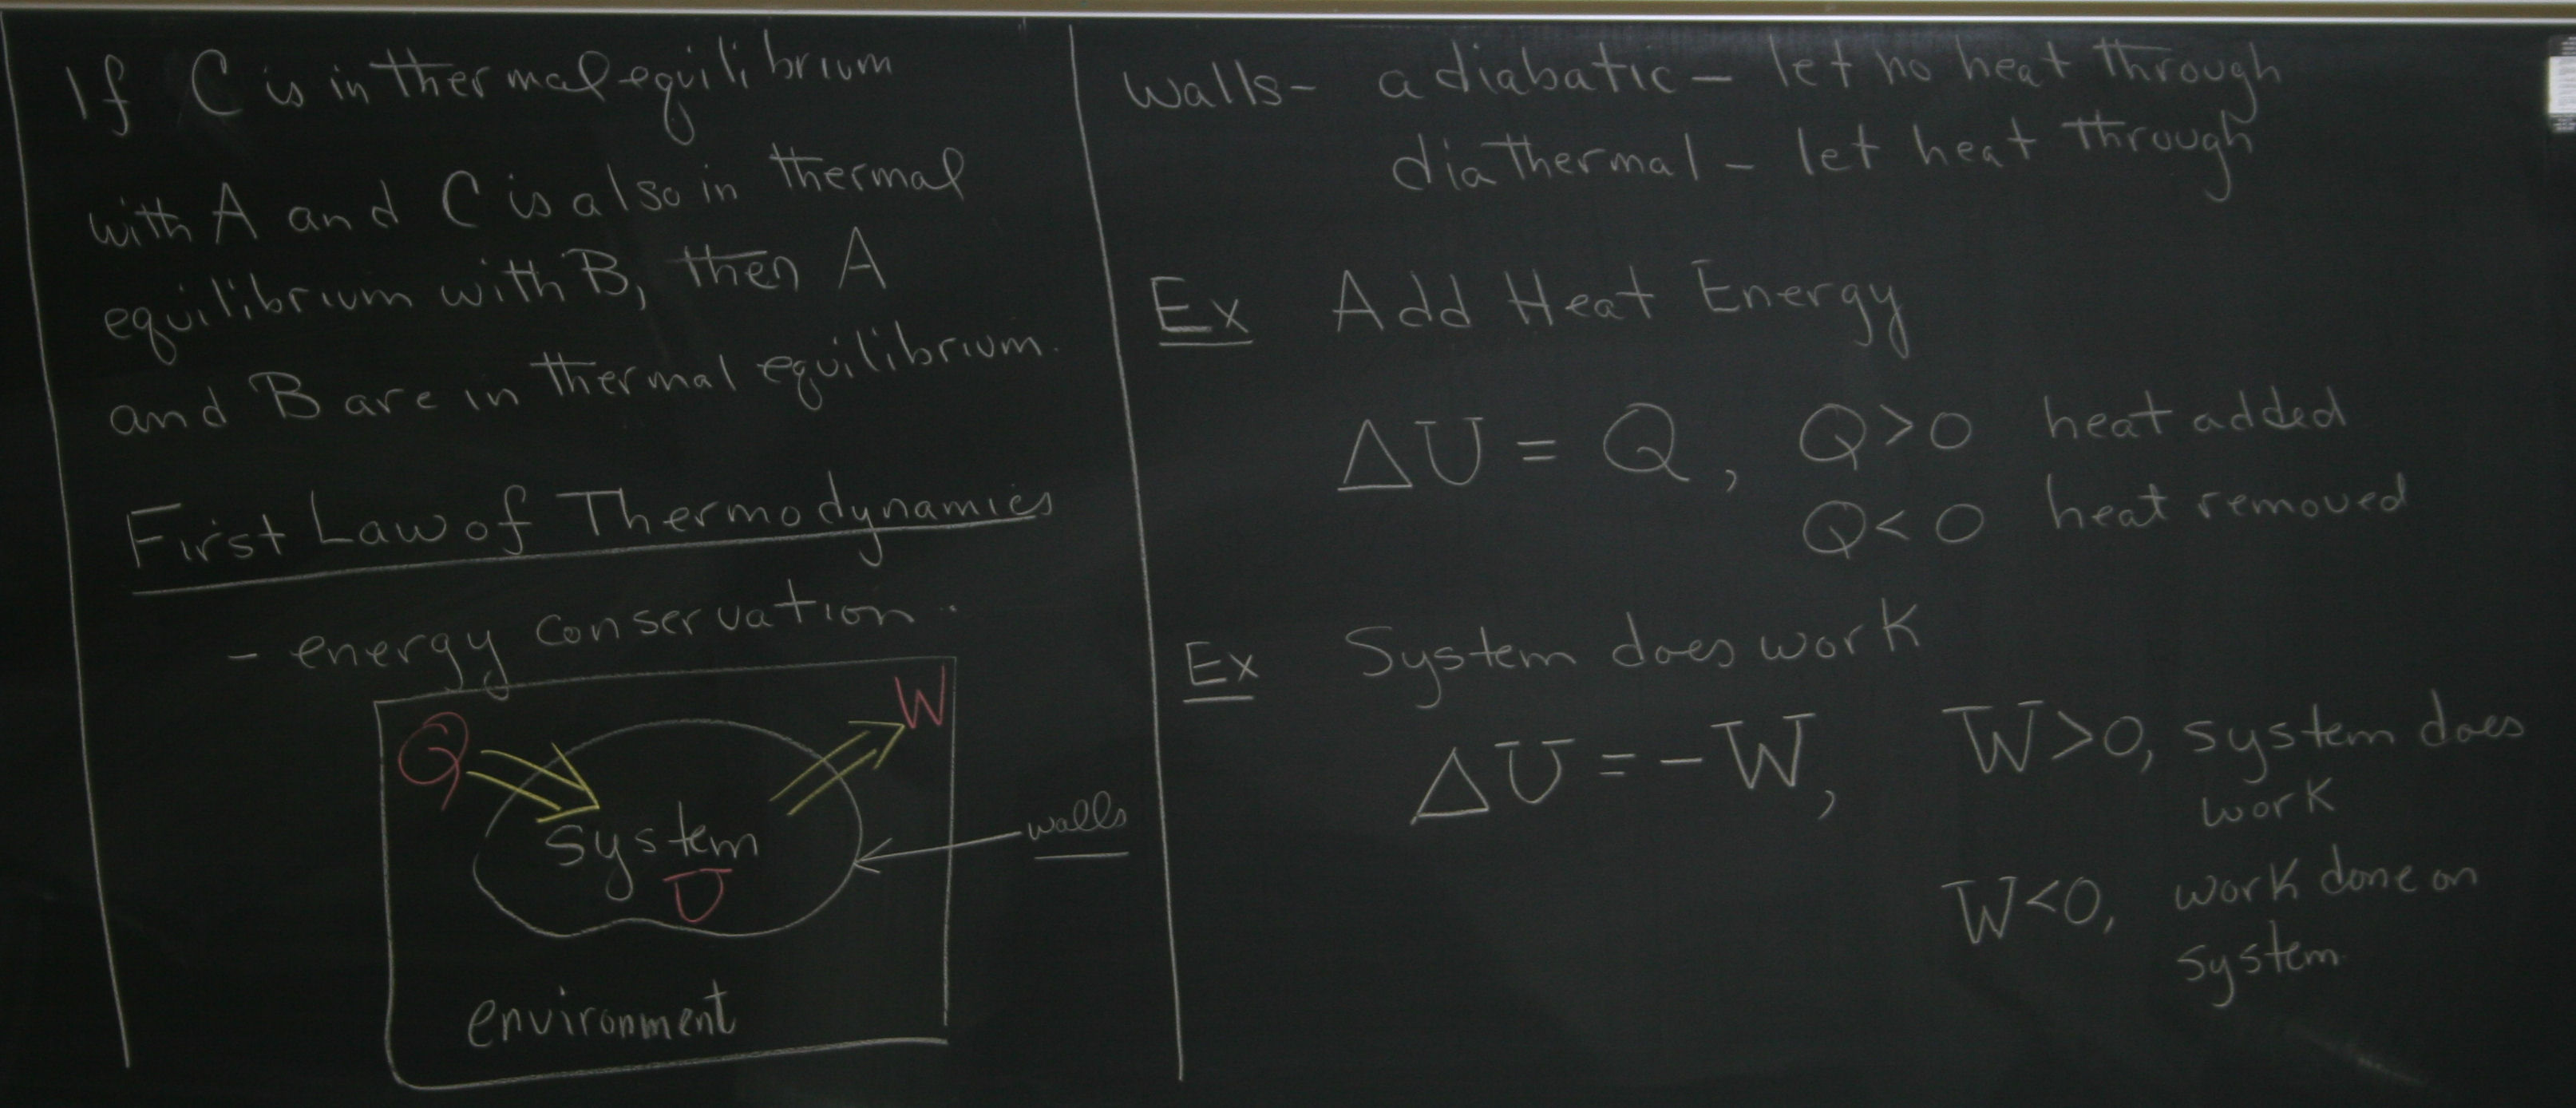 If C is in thermal equilibrium
with A and C is also in thermal
equilibrium with B, then A
and B are in thermal equilibrium.
First Law of Thermodynamics
- energy conservation..
Q
W
system
U
walls
environment
walls- adiabatic - let no heat through
diathermal - let heat through
Ex Add Heat Energy
ΔU = Q, Q>0 heat added
Q<0 heat removed
Ex System does work
ΔU = -W, W>0, system does
work
W<0, work done on
system.